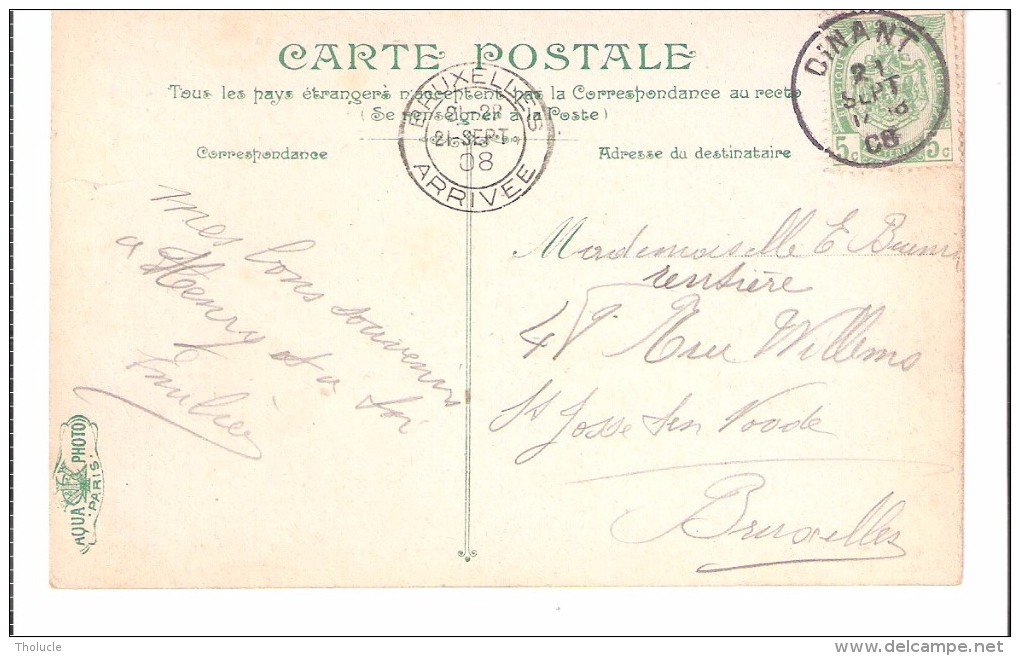 CARTE POSTALE
Tous les pays étrangers n'acceptent pas la Correspondance au recto
(Se renseigner à la Poste)
Correspondance
Adresse du destinataire
BRUXELLES
21-SEPT
08
ARRIVEE
DINANT
21
SEPT
08
5c 5c
mes bons souvenirs
a Henry et a toi
Mademoiselle E
rentière
Rue Willems
St Josse ten Noode
Bruxelles
AQUA PHOTO
PARIS
Tholucle
delcampe.net